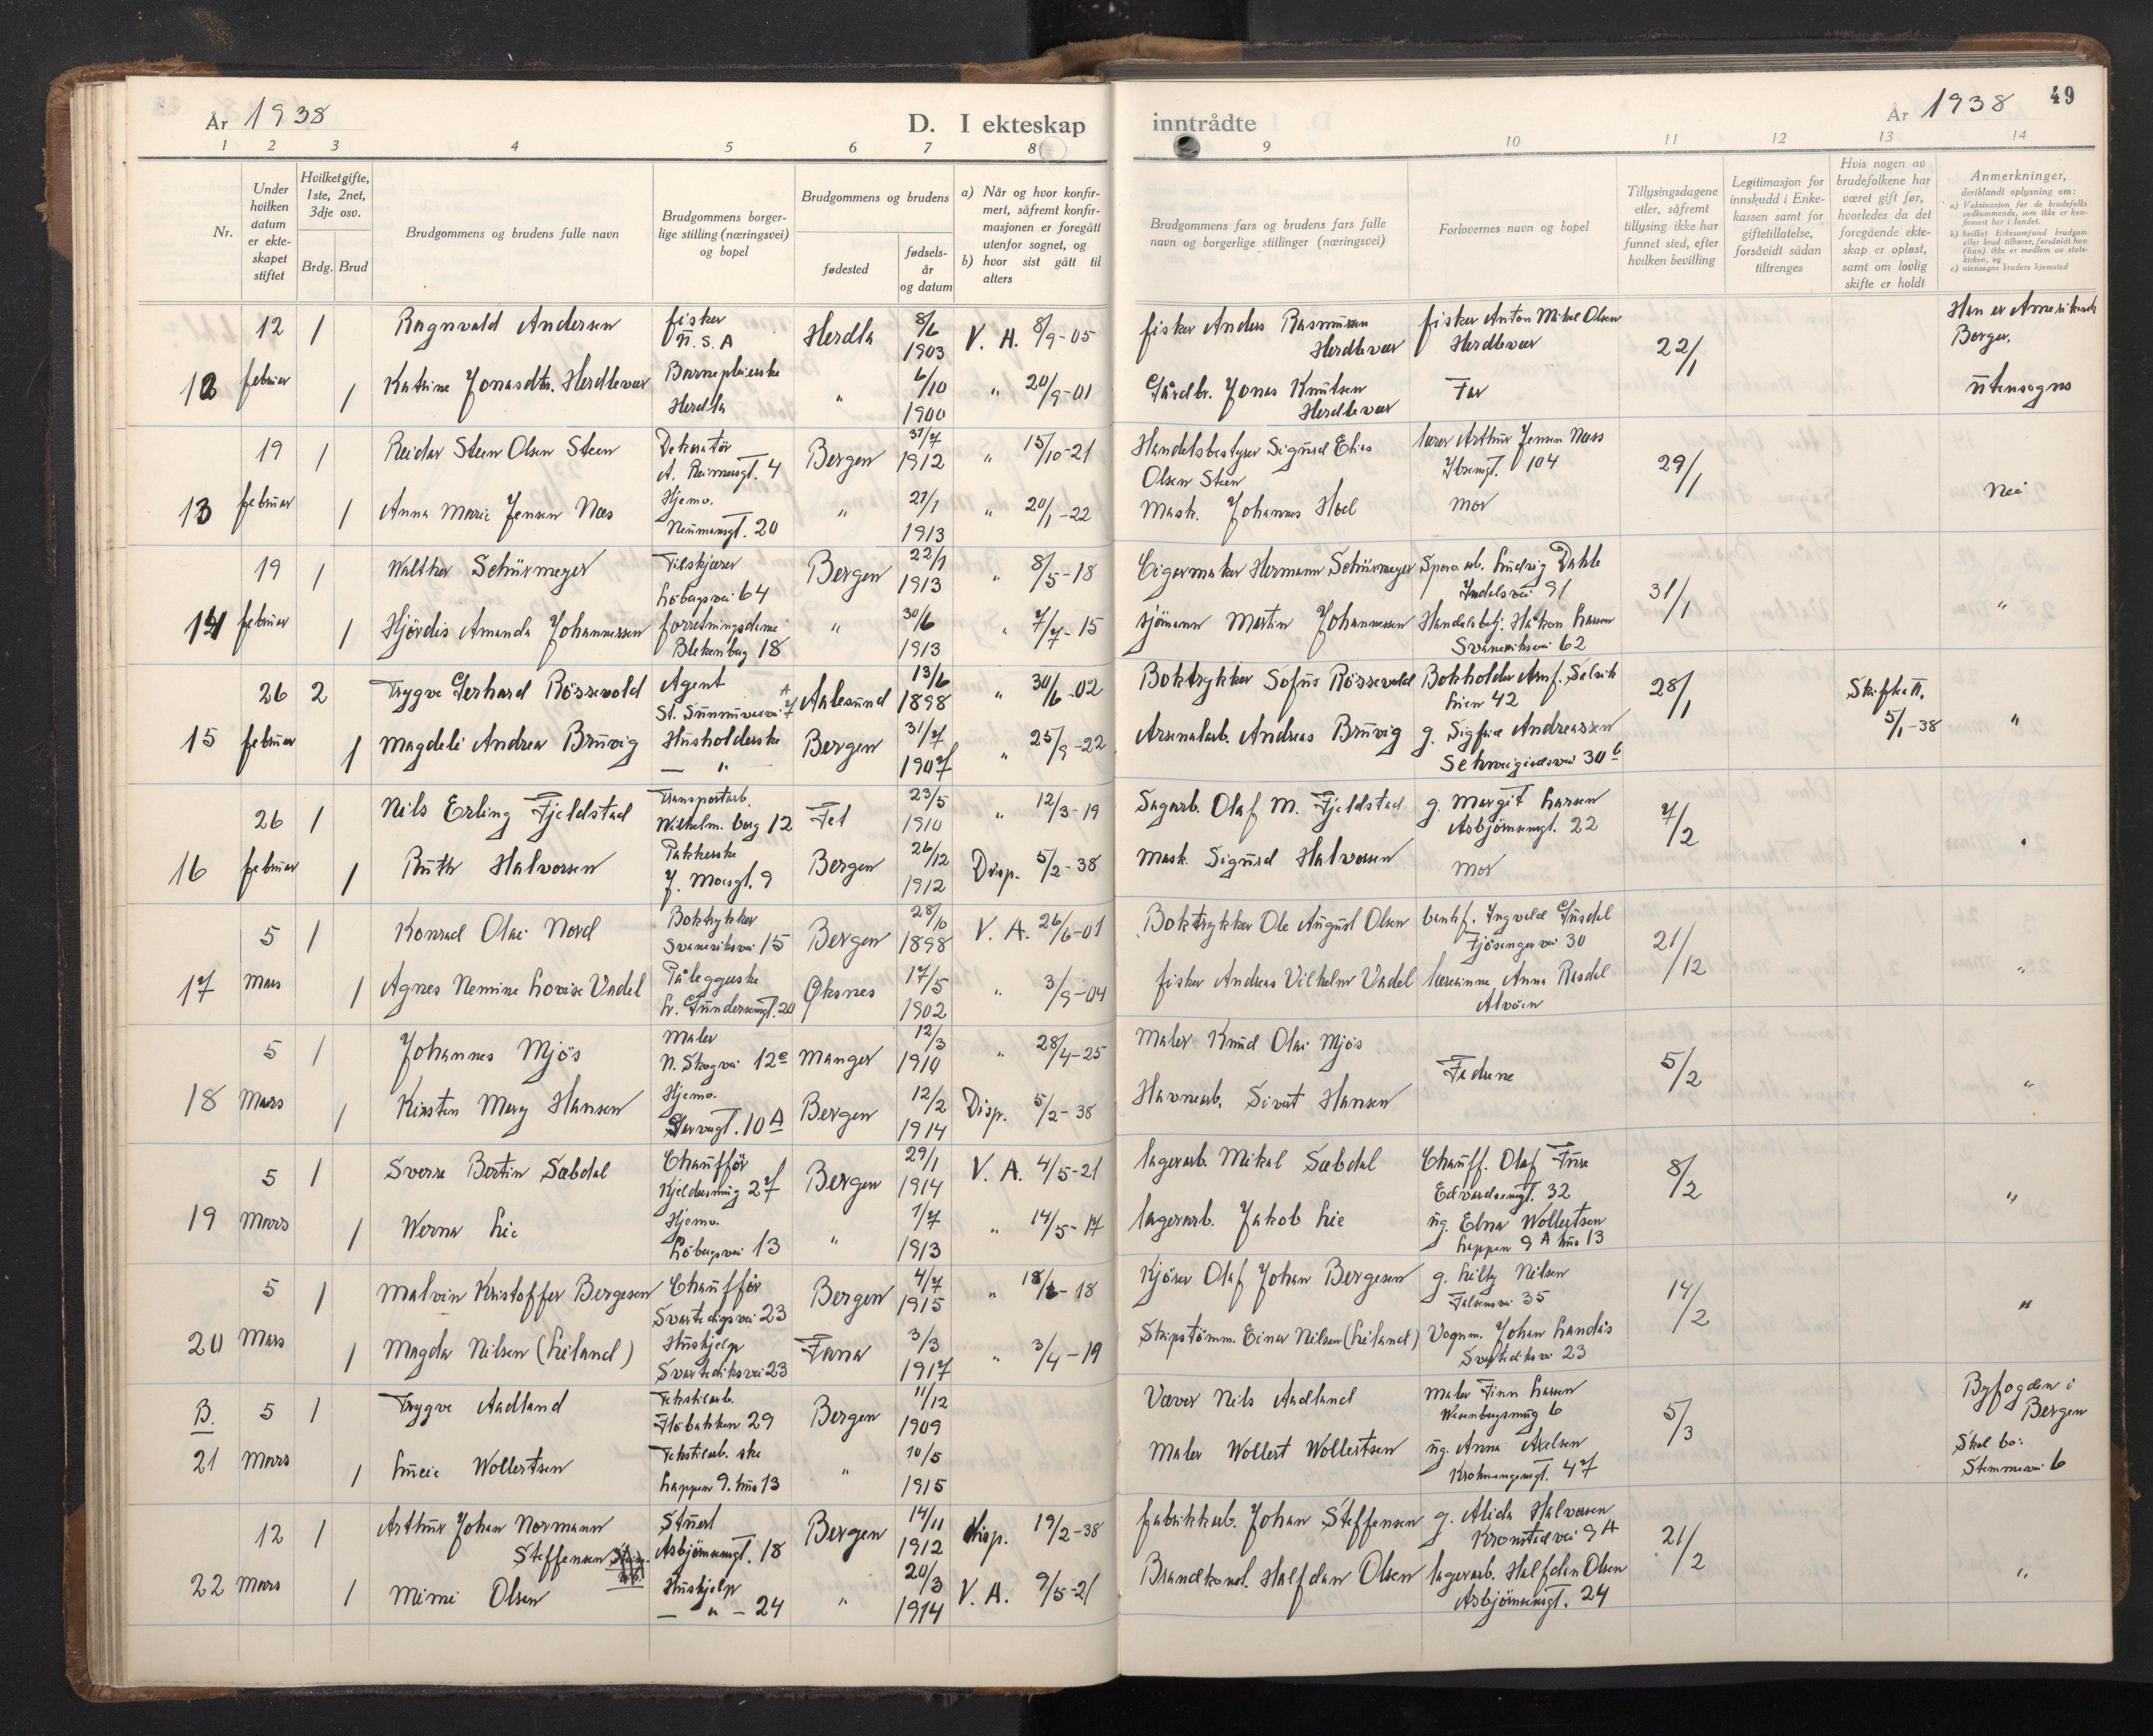 År 1938
D. I ekteskap
inntrådte
År 1938
49
1 2 3 4 5 6 7 8 9 10 11 12 13 14
Nr.
Under hvilken datum er ekteskapet stiftet
Hvilketgifte, 1ste, 2net, 3dje osv.
Brdg. Brud
Brudgommens og brudens fulle navn
Brudgommens borgerlige stilling (næringsvei) og bopel
Brudgommens og brudens
fødested
fødselsår og datum
a) Når og hvor konfirmert, såfremt konfirmasjonen er foregått utenfor sognet, og
b) hvor sist gått til alters
Brudgommens fars og brudens fars fulle navn og borgerlige stillinger (næringsvei)
Forlovernes navn og bopel
Tillysingsdagene eller, såfremt tillysing ikke har funnet sted, efter hvilken bevilling
Legitimasjon for innskudd i Enkekassen samt for giftetillatelse, forsåvidt sådan tiltrenges
Hvis nogen av brudefolkene har været gift før, hvorledes da det foregående ekteskap er opløst, samt om lovlig skifte er holdt
Anmerkninger, deriblandt oplysning om:
a) Vaksinasjon for de brudefolks vedkommende, som ikke er konfirmert her i landet.
b) hvilket kirkesamfund brudgom eller brud tilhører, forsåvidt han (hun) ikke er medlem av statskirken, og
c) utensogns bruders hjemsted
12 1 Ragnvald Andersen fisker U.S.A Herdla 8/6 1903 V. A. 8/9-05 fisker Anders Rasmussen Herdlevær fisker Anton Mikal Olsen Herdlevær 22/1 Han er Amerikansk Borger.
12 februar 1 Katrine Jonasdtr. Herdlevær Barnepleierske Herdla " 6/10 1900 " 20/9-01 Gårdbr. Jonas Knutsen Herdlevær Far utensogns
19 1 Reidar Steen Olsen Steen Dekoratør A. Reimersgt. 4 Bergen 31/7 1912 " 15/10-21 Handelsbestyrer Sigurd Elias Olsen Steen lærer Arthur Jensen Næss Ibsensgt. 104 29/1
13 februar 1 Anna Marie Jensen Næs Hjemv. Neumannsgt. 20 " 21/1 1913 " 20/1-22 Mask. Johannes Hoel Mor Nei
19 1 Walther Schürmeyer Tilskjærer Løbergsvei 64 Bergen 22/1 1913 " 8/5-18 Cigarmaker Hermann Schürmeyer Sporv.arb. Ludvig Dahle Indelsvei 91 31/1
14 februar 1 Hjördis Amanda Johannessen forretningsdame Blekenberg 18 " 30/6 1913 " 7/7-15 sjömann Martin Johannessen Handelsbetj. Håkon Larsen Svaneviksvei 62 "
26 2 Trygve Gerhard Rössevold Agent St. Sunnivasvei 7 A Aalesund 13/6 1898 " 30/6-02 Boktrykker Sofus Rössevold Bokholder Arnf. Selvik Lien 42 28/1 Skifte II. 5/1-38
15 februar 1 Magdeli Andrea Bruvig Husholderske — " — Bergen 31/7 1907 " 25/9-22 Arsenalarb. Andreas Bruvig g. Sigfrid Andreassen Schweigaardsvei 30 b "
26 1 Nils Erling Fjeldstad Transportarb. Wilhelm. berg 12 Fet 23/5 1910 " 12/3-19 Sagarb. Olaf M. Fjeldstad g. Margit Larsen Asbjörnsensgt. 22 7/2
16 februar 1 Ruth Halvorsen Pakkerske J. Moesgt. 9 Bergen 26/12 1912 Disp. 5/2-38 Mask. Sigurd Halvorsen Mor "
5 1 Konrad Olai Nord Boktrykker Svaneviksvei 15 Bergen 1898 V. A. 26/6-01 Boktrykker Ole August Olsen bankf. Ingvald Gusdal Fjösangervei 30 21/12
17 Mars 1 Agnes Nemine Lovise Vadel Påleggerske L. Gundersensgt. 20 Øksnes 17/5 1902 " 3/9-04 fisker Andreas Vilhelm Vadel lærerinne Anna Rasdal Alvöen "
5 1 Johannes Mjös Maler N. Skogvei 12 e Manger 12/3 1910 " 28/4-25 Maler Knud Olai Mjös Fedrene 5/2
18 Mars 1 Kirsten Mary Hansen Hjemv. Garvergt. 10 A Bergen 12/2 1914 Disp. 5/2-38 Havnearb. Sivert Hansen "
5 1 Sverre Bertin Sæbdal Chaufför Kjeldersmug 27 Bergen 29/1 1914 V. A. 4/5-21 lagerarb. Mikal Sæbdal Chauff. Olaf Fure Edvardsensgt. 32 8/2
19 Mars 1 Werna Lie Hjemv. Løbergsvei 13 " 1/7 1913 " 14/5-17 lagerarb. Jakob Lie ug. Edna Wollertsen Lappen 9 A hus 13 "
5 1 Malvin Kristoffer Bergesen Chauffør Svartediksvei 23 Bergen 4/7 1915 " 18-18 Kjörer Olaf Johan Bergesen g. Lilly Nilsen Falsensvei 35 14/2
20 Mars 1 Magda Nilsen (Leiland) Hushjelp Svartediksvei 23 Fana 3/3 1917 " 3/4-19 Skipstömm. Einar Nilsen (Leiland) Vognm. Johan Landås Svartediksvei 23 "
B. 5 1 Trygve Aadland Tekstilarb. Flöbakken 29 Bergen 11/12 1909 Væver Nils Aadland Maler Finn Larsen Wesenbergsmug 6 5/3 Byfogden i Bergen
21 Mars 1 Lucie Wollertsen Tekstilarb. ske Lappen 9. hus 13 " 10/5 1915 Maler Wollert Wollertsen ug. Anna Axelsen Krohnengensgt. 47 Skal bo: Stemmevei 6
12 1 Arthur Johan Normann Steffensen Stuert Asbjörnsensgt. 18 Bergen 14/11 1912 Disp. 19/2-38 fabrikkarb. Johan Steffensen g. Alida Halvorsen Kronstadvei 9 A 21/2
22 Mars 1 Mimi Olsen Hushjelp — " — 24 " 20/3 1914 V. A. 9/5-21 Brandkonst. Halfdan Olsen lagerarb. Halfdan Olsen Asbjörnsensgt. 24 "